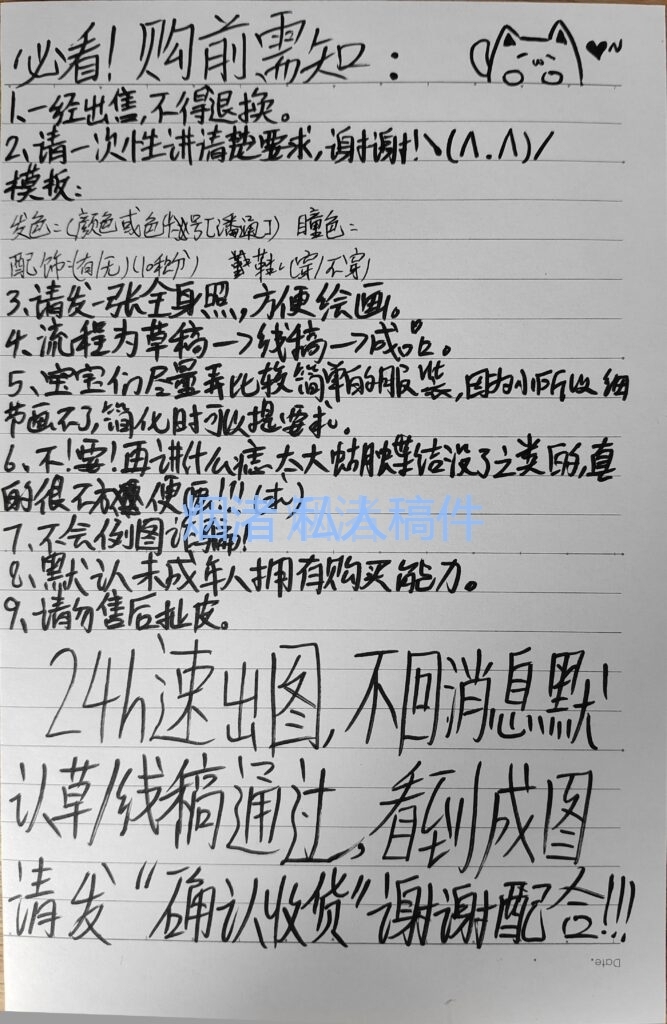 必看！购前需知：
1.一经出售,不得退换。
2、请一次性讲清楚要求,谢谢!\(∧.∧)/
模板：
发色=(颜色或色卡号[潘通]) 瞳色=
配饰=(有/无)(10积分) 鞋=(穿/不穿)
3、请发一张全身照,方便绘画。
4、流程为草稿—>线稿—>成品。
5、宝宝们尽量弄比较简单的服装,因为小所以细
节画不了,简化时可以提要求。
6、不！要！再讲什么痣太大蝴蝶结没了之类的,真
的很不方便画!!!(求)
烟渚 私法稿件
7、不会倒图诈骗!
8、默认未成年人拥有购买能力。
9、请勿售后扯皮。
24h速出图,不回消息默
认草/线稿通过,看到成图
请发“确认收货”谢谢配合!!!
Date.